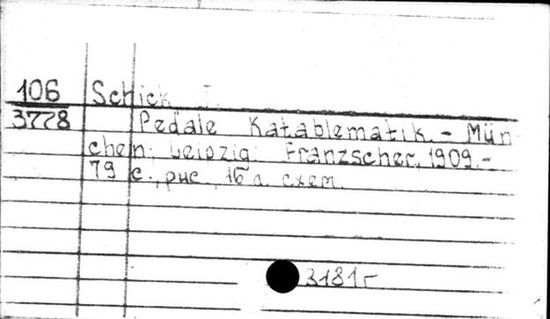 106 Schick J.
3778 Pedale Katablematik. - Mün
chen; Leipzig: Franzscher, 1909. -
79 с., рис., 16 л. схем.
3181г